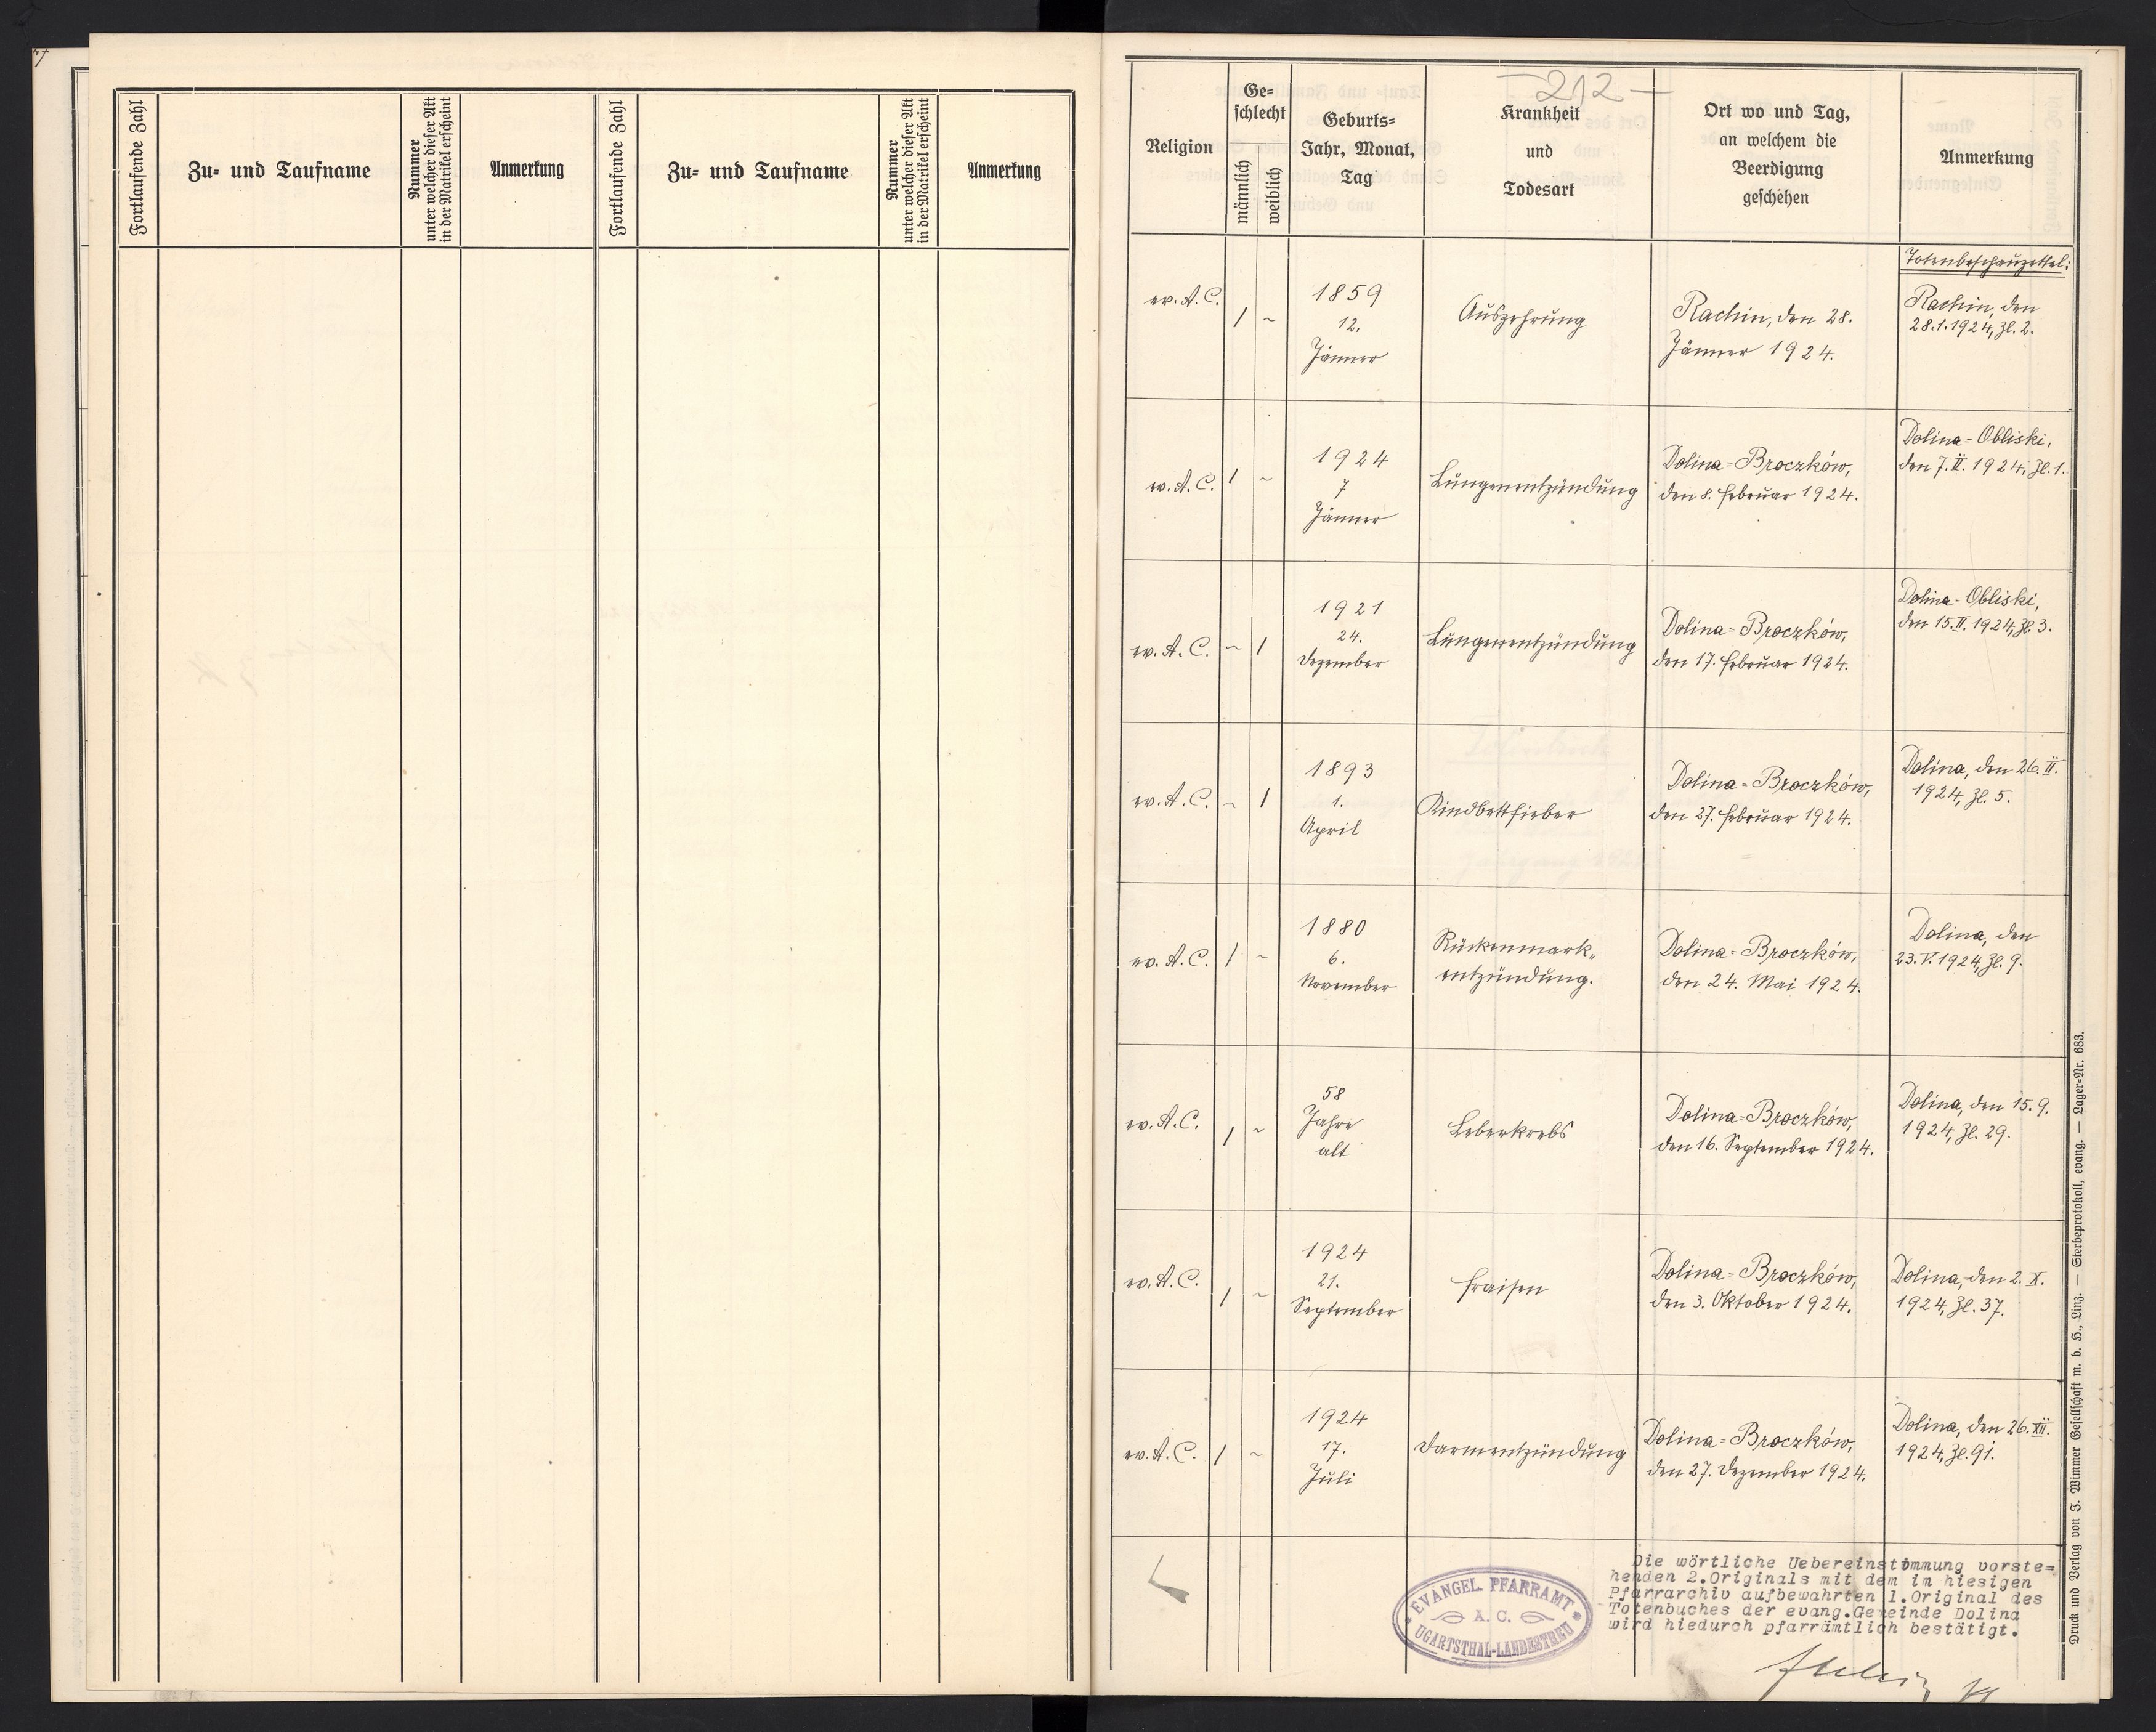 Fortlaufende Zahl
Zu- und Taufname
Nummer
unter welcher dieser Akt
in der Matrikel erscheint
Anmerkung
Fortlaufende Zahl
Zu- und Taufname
Nummer
unter welcher dieser Akt
in der Matrikel erscheint
Anmerkung
- 212 -
Religion
Ge-
schlecht
männlich
weiblich
Geburts-
Jahr, Monat,
Tag
Krankheit
und
Todesart
Ort wo und Tag,
an welchem die
Beerdigung
geschehen
Anmerkung
Totenbeschauzettel:
ev. A. C.
1 ~
1859
12.
Jänner
Auszehrung
Rachin, den 28.
Jänner 1924.
Rachin, den
28.1.1924, Zl. 2.
ev. A. C.
1 ~
1924
7
Jänner
Lungenentzündung
Dolina-Broczków,
den 8. Februar 1924.
Dolina-Obliski,
den 7. II. 1924, Zl. 1.
ev. A. C.
~ 1
1921
24.
Dezember
Lungenentzündung
Dolina-Broczków,
den 17. Februar 1924.
Dolina-Obliski,
den 15. II. 1924, Zl. 3.
ev. A. C.
~ 1
1893
1.
April
Kindbettfieber
Dolina-Broczków,
den 27. Februar 1924.
Dolina, den 26. II.
1924, Zl. 5.
ev. A. C.
1 ~
1880
6.
November
Rückenmark-
entzündung.
Dolina-Broczków,
den 24. Mai 1924.
Dolina, den
23. V. 1924, Zl. 9.
ev. A. C.
1 ~
58
Jahre
alt
Leberkrebs
Dolina-Broczków,
den 16. September 1924.
Dolina, den 15. 9.
1924, Zl. 29.
ev. A. C.
1 ~
1924
21.
September
Fraisen
Dolina-Broczków,
den 3. Oktober 1924.
Dolina, den 2. X.
1924, Zl. 37.
ev. A. C.
1 ~
1924
17.
Juli
Darmentzündung
Dolina-Broczków,
den 27. Dezember 1924.
Dolina, den 26. XII.
1924, Zl. 91.
EVANGEL. PFARRAMT
A. C.
UGARTSTHAL-LANDESTREU
Die wörtliche Uebereinstimmung vorste=
henden 2.Originals mit dem im hiesigen
Pfarrarchiv aufbewahrten 1.Original des
Totenbuches der evang.Gemeinde Dolina
wird hiedurch pfarrämtlich bestätigt.
Druck und Verlag von J. Wimmer Gesellschaft m. b. H., Linz. — Sterbeprotokoll, evang. — Lager-Nr. 683.